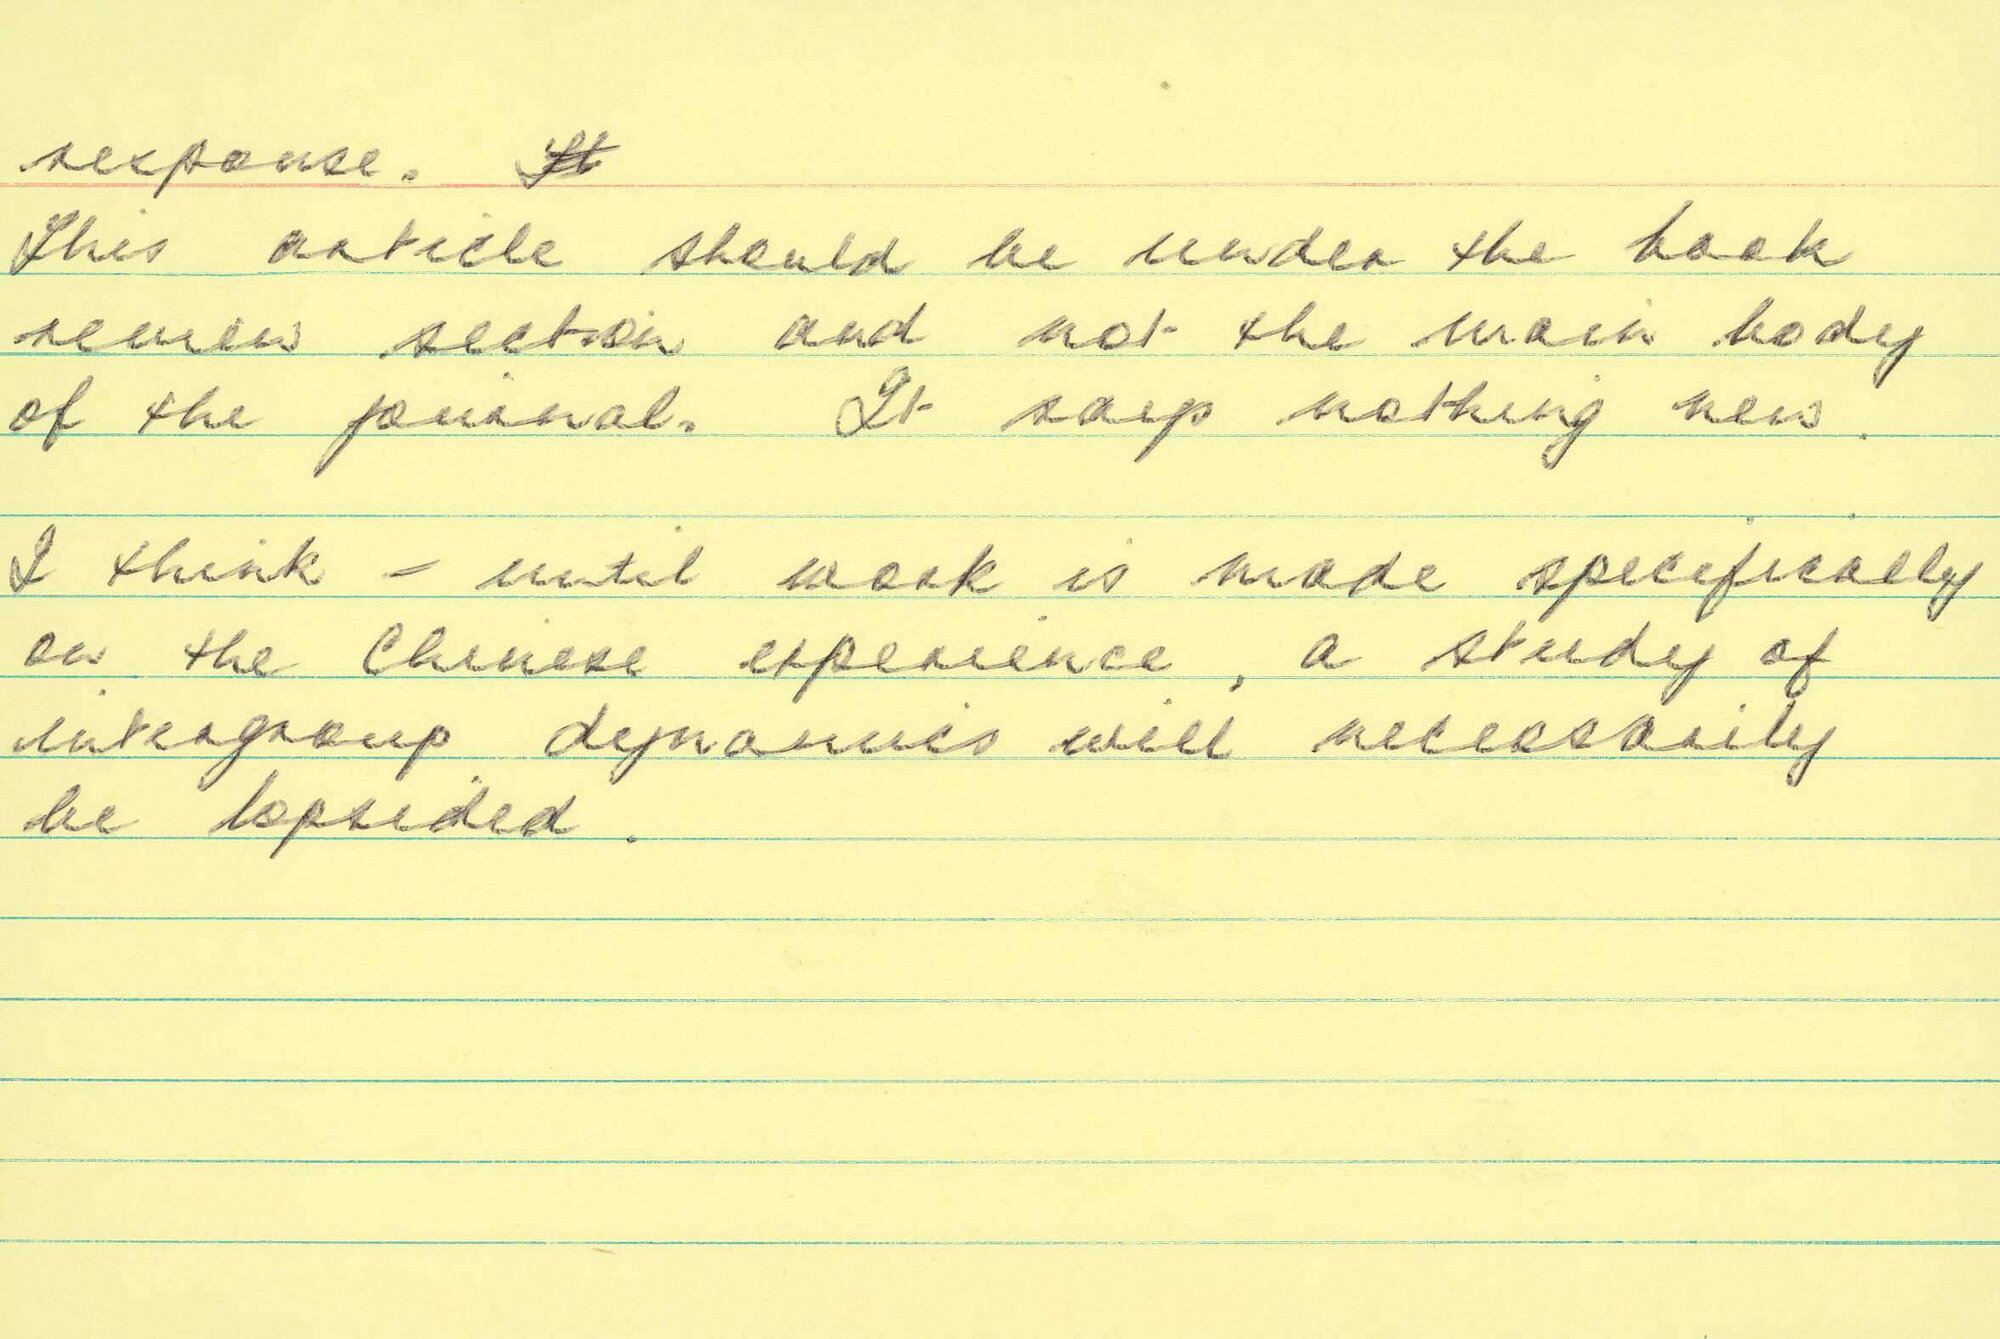 response. It
This article should be under the book
review section and not the main body
of the journal. It says nothing new.
I think - until work is made specifically
on the Chinese experience, a study of
intergroup dynamics will necessarily
be lopsided.